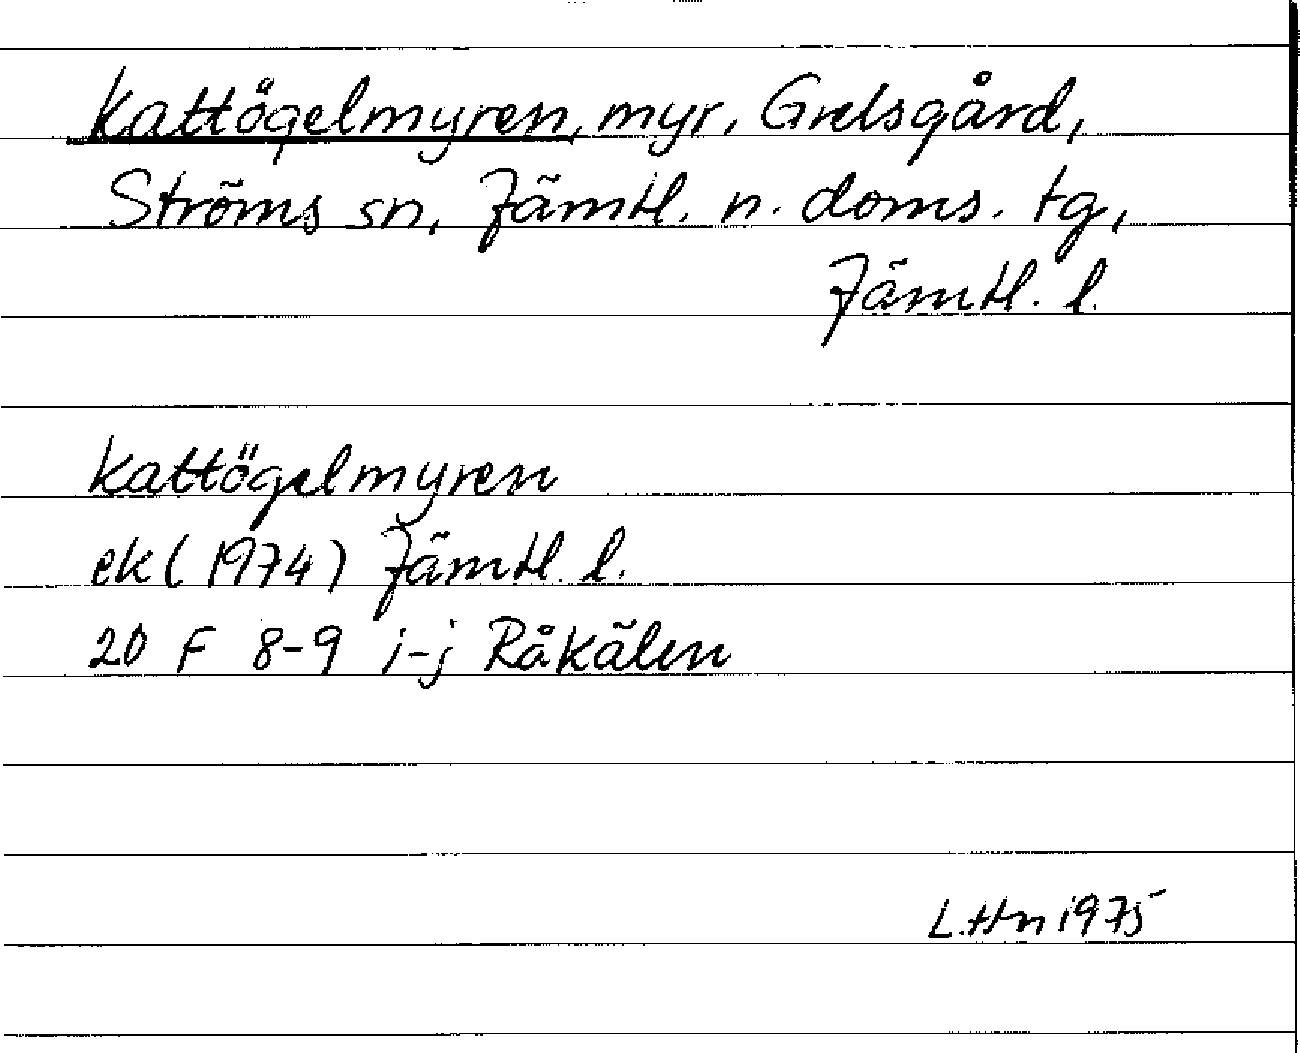 Kattögelmyren, myr, Grelsgård,
Ströms sn, Jämtl. n. doms. tg,
Jämtl. l.
Kattögelmyren
ek (1974) Jämtl. l.
20 F 8-9 i-j Råkälen
L. Hn 1975